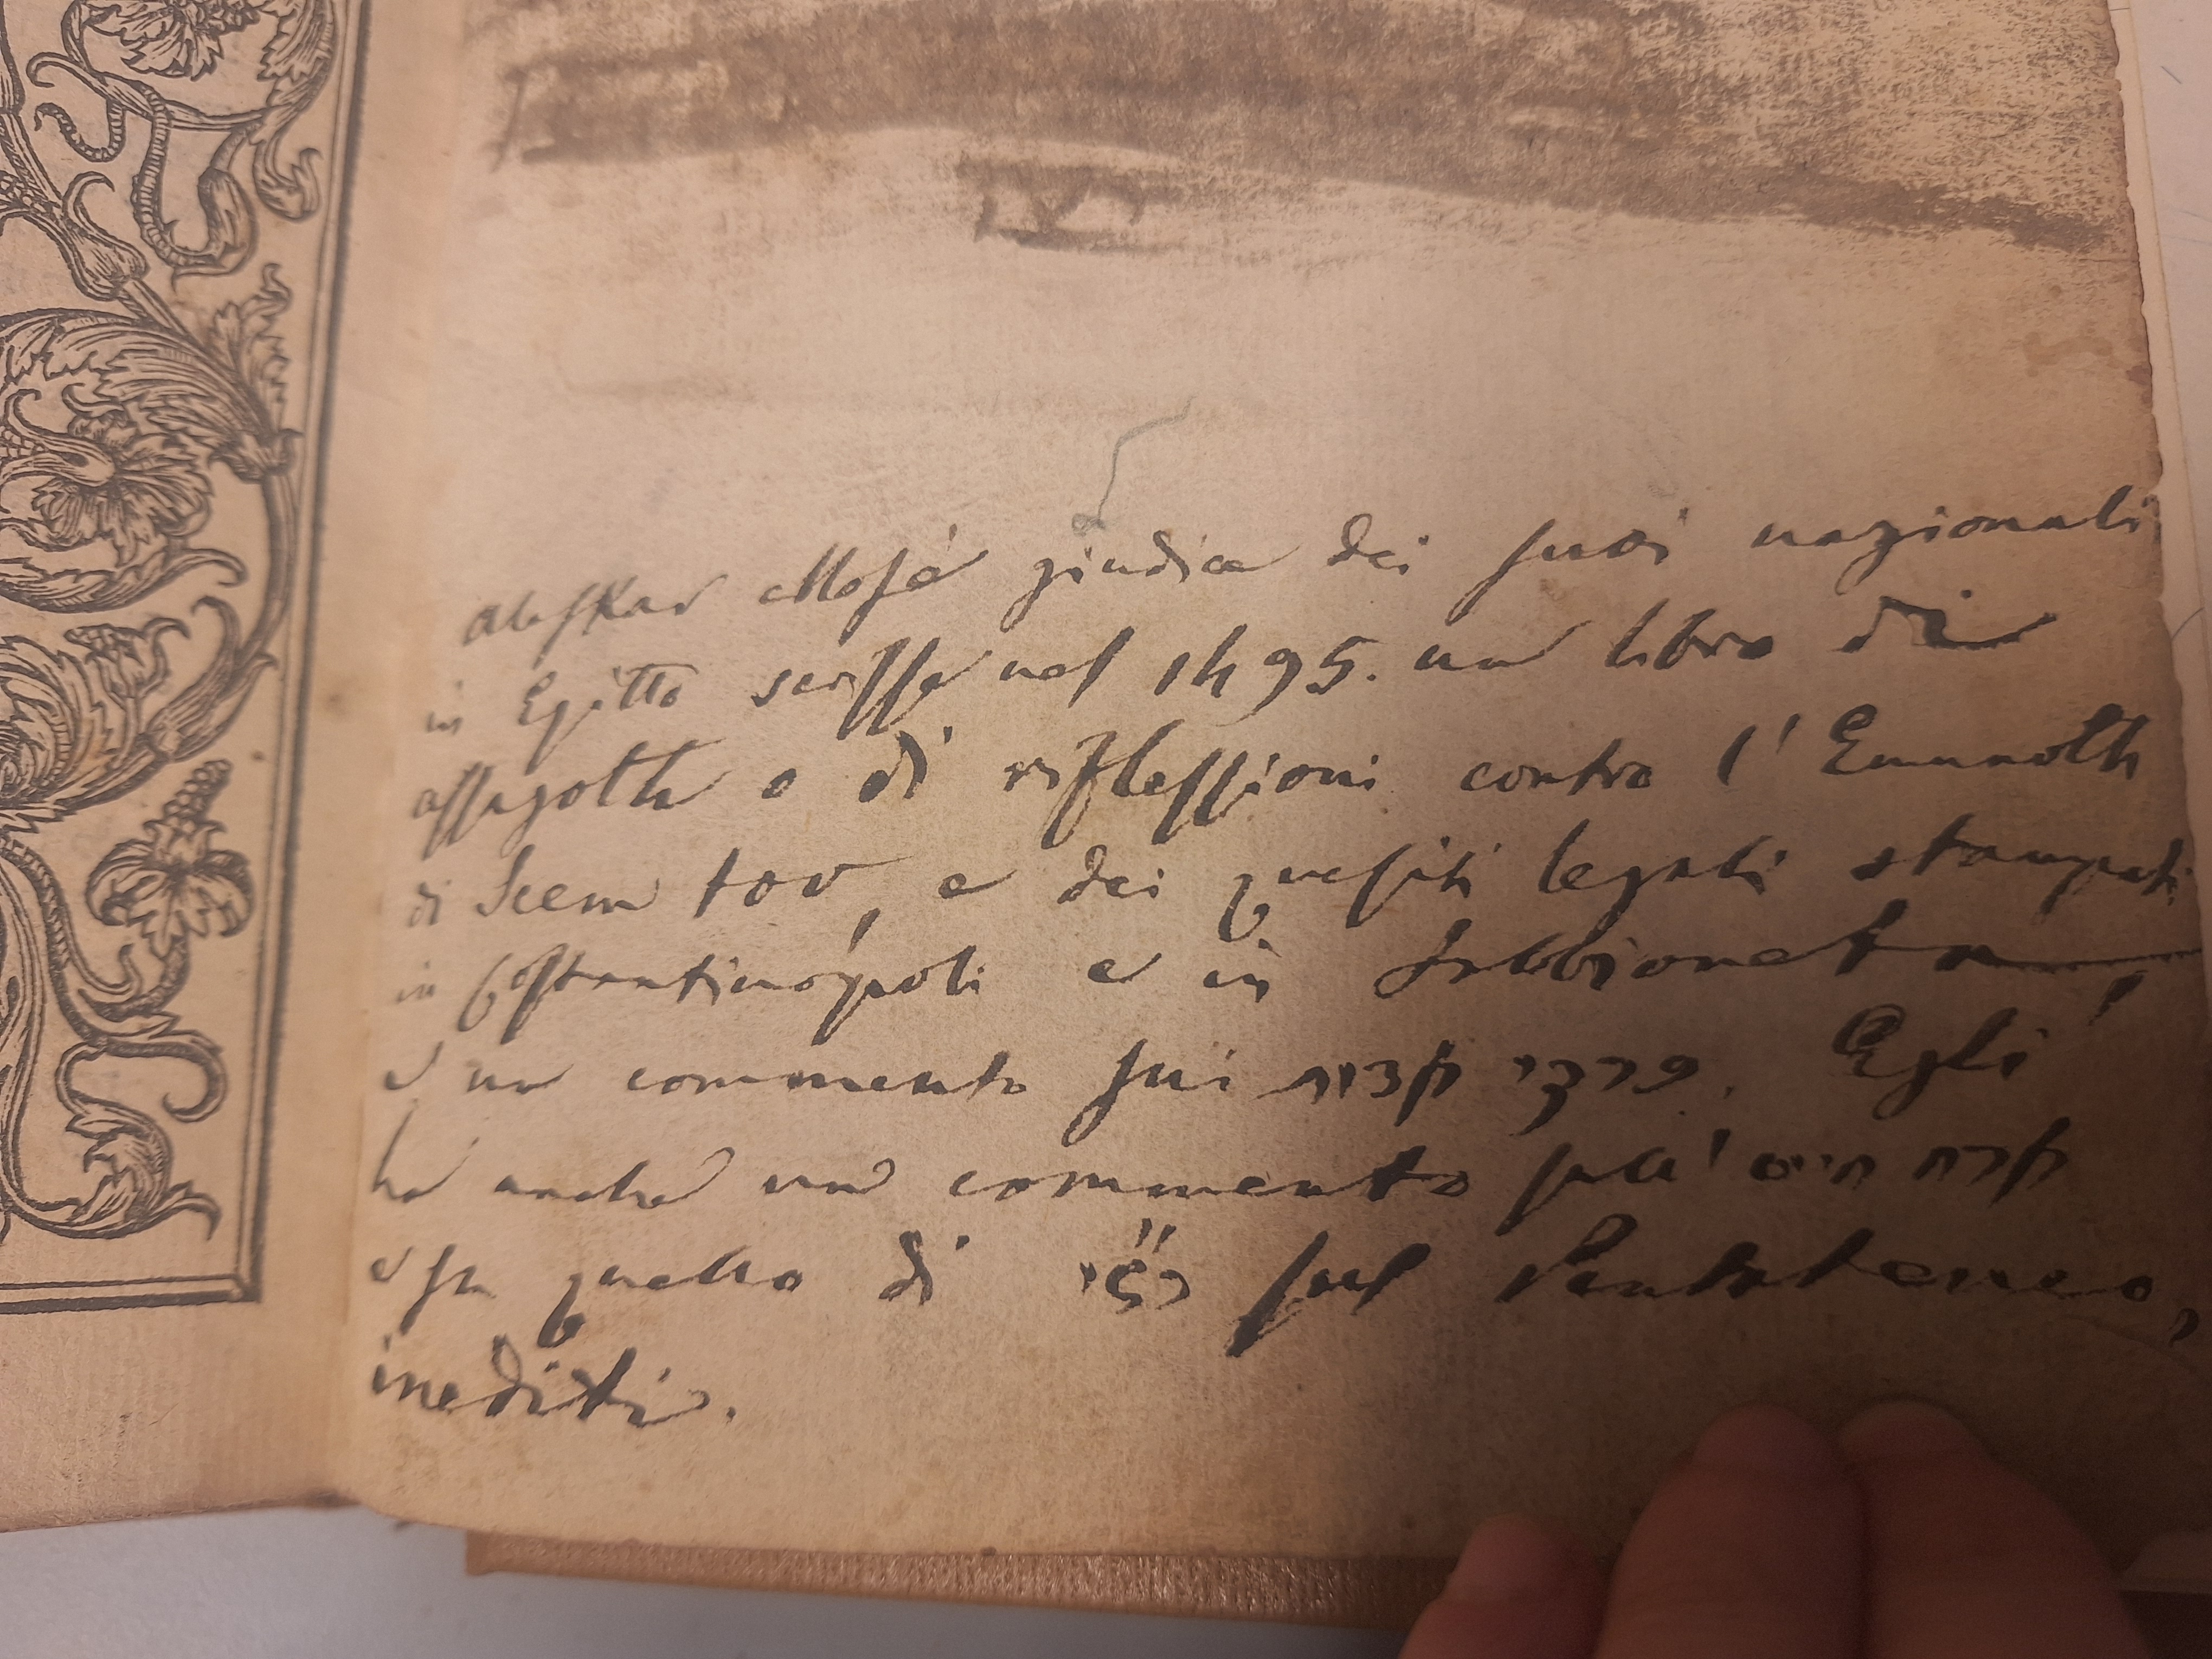 Aleskar Mosè giudice dei suoi nazionali
in Egitto scrisse nel 1495. un libro di
assagoth o di riflessioni contro l'Emunoth
di Scem tov, e dei quesiti legali stampati
in Costantinopoli e in Sabbioneta,
e un commento sui פרקי אבות. Egli
ha anche un commento sull' אורח חיים
e su quello di רש״י sul Pentateuco,
inediti.